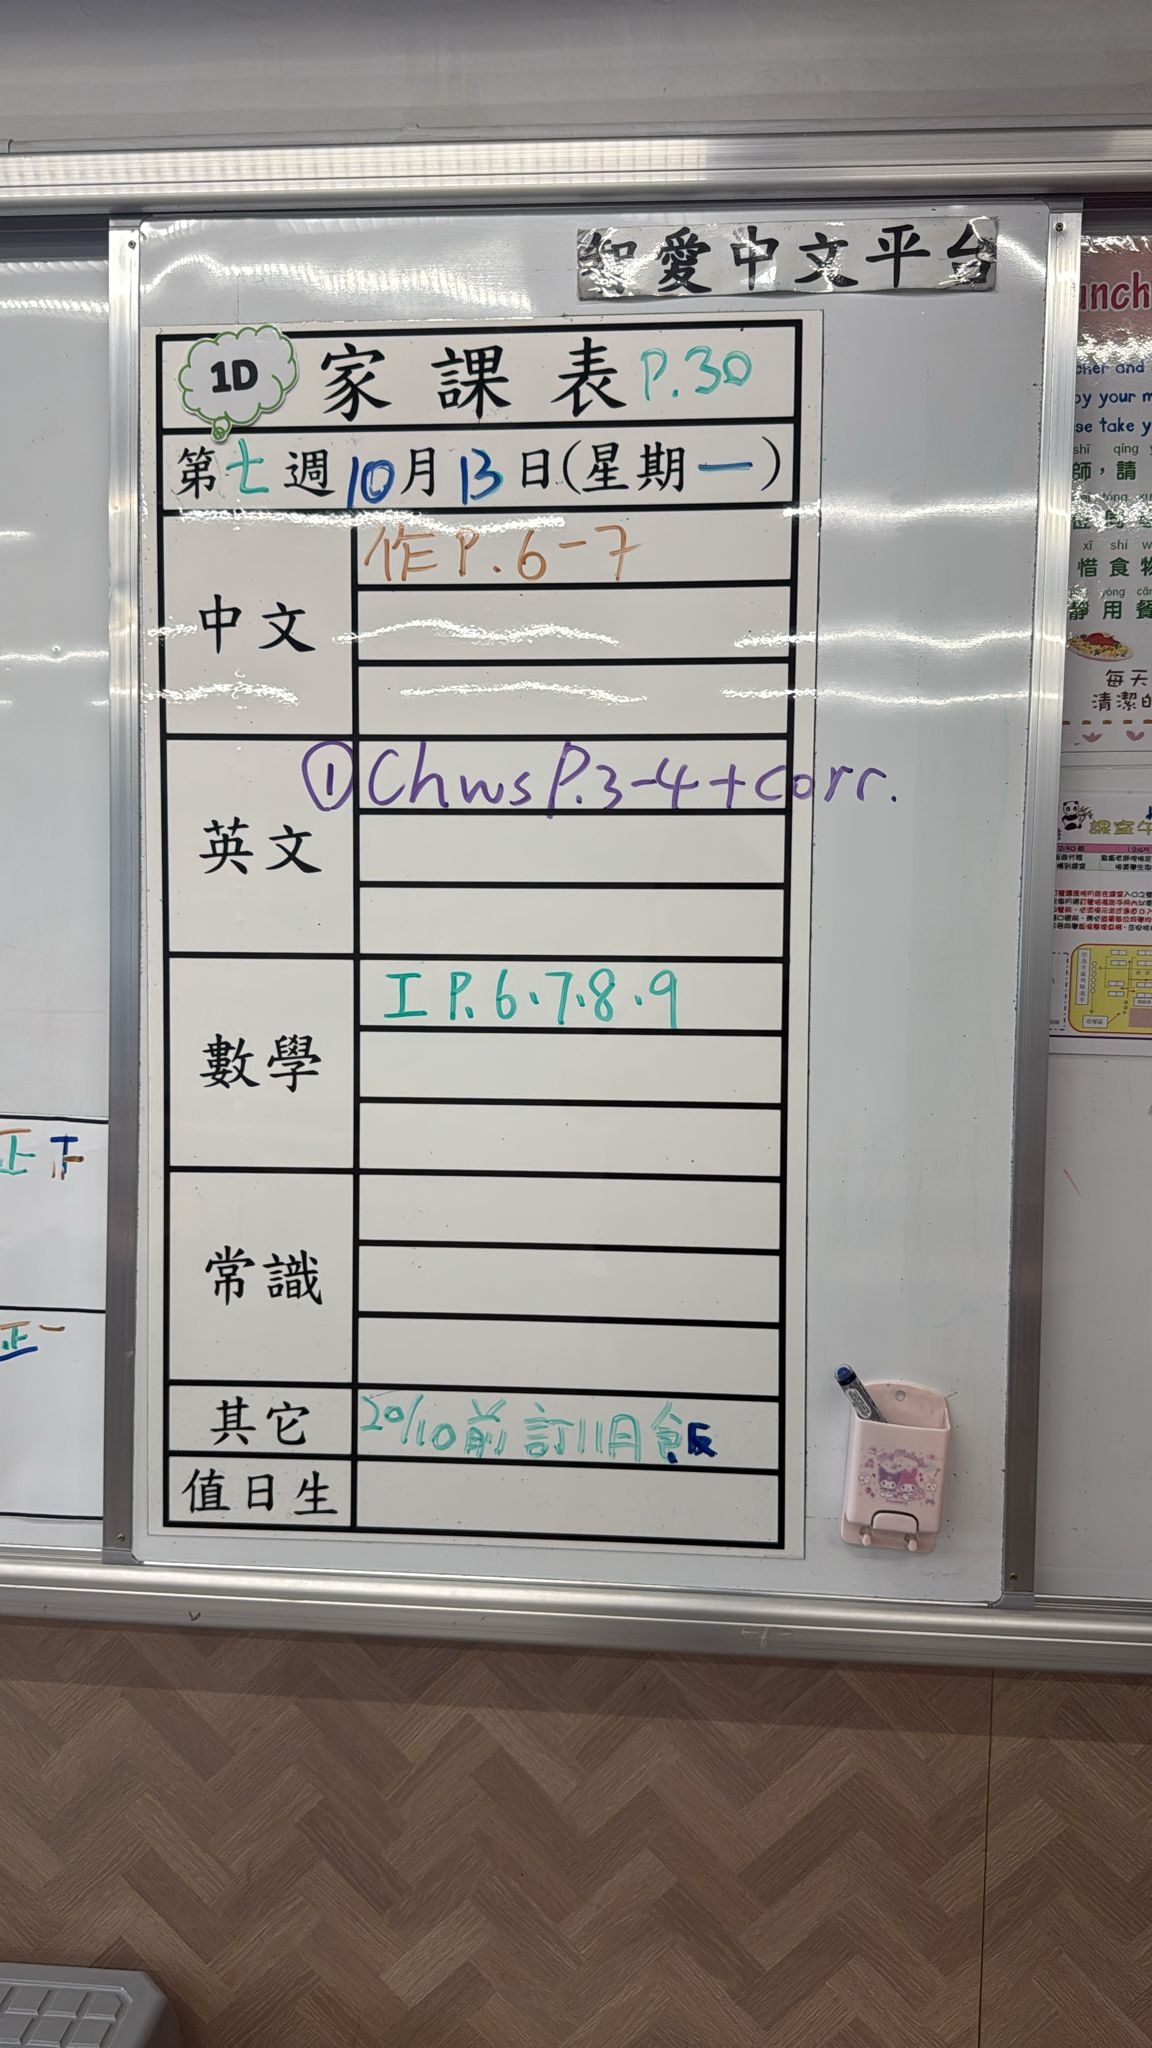 愛中文平台
1D 家課表 P.30
第七週10月13日(星期一)
中文
作P.6-7
英文
①Chws P.3-4+corr.
數學
工 P.6.7.8.9
常識
其它
20/10前訂11月飯
值日生
unch
cher and
by your m
se take y
shī qǐng
師，請
xī shí w
惜食物
yòng cān
靜用餐
每天
清潔的
課室午
12:45
正
正一